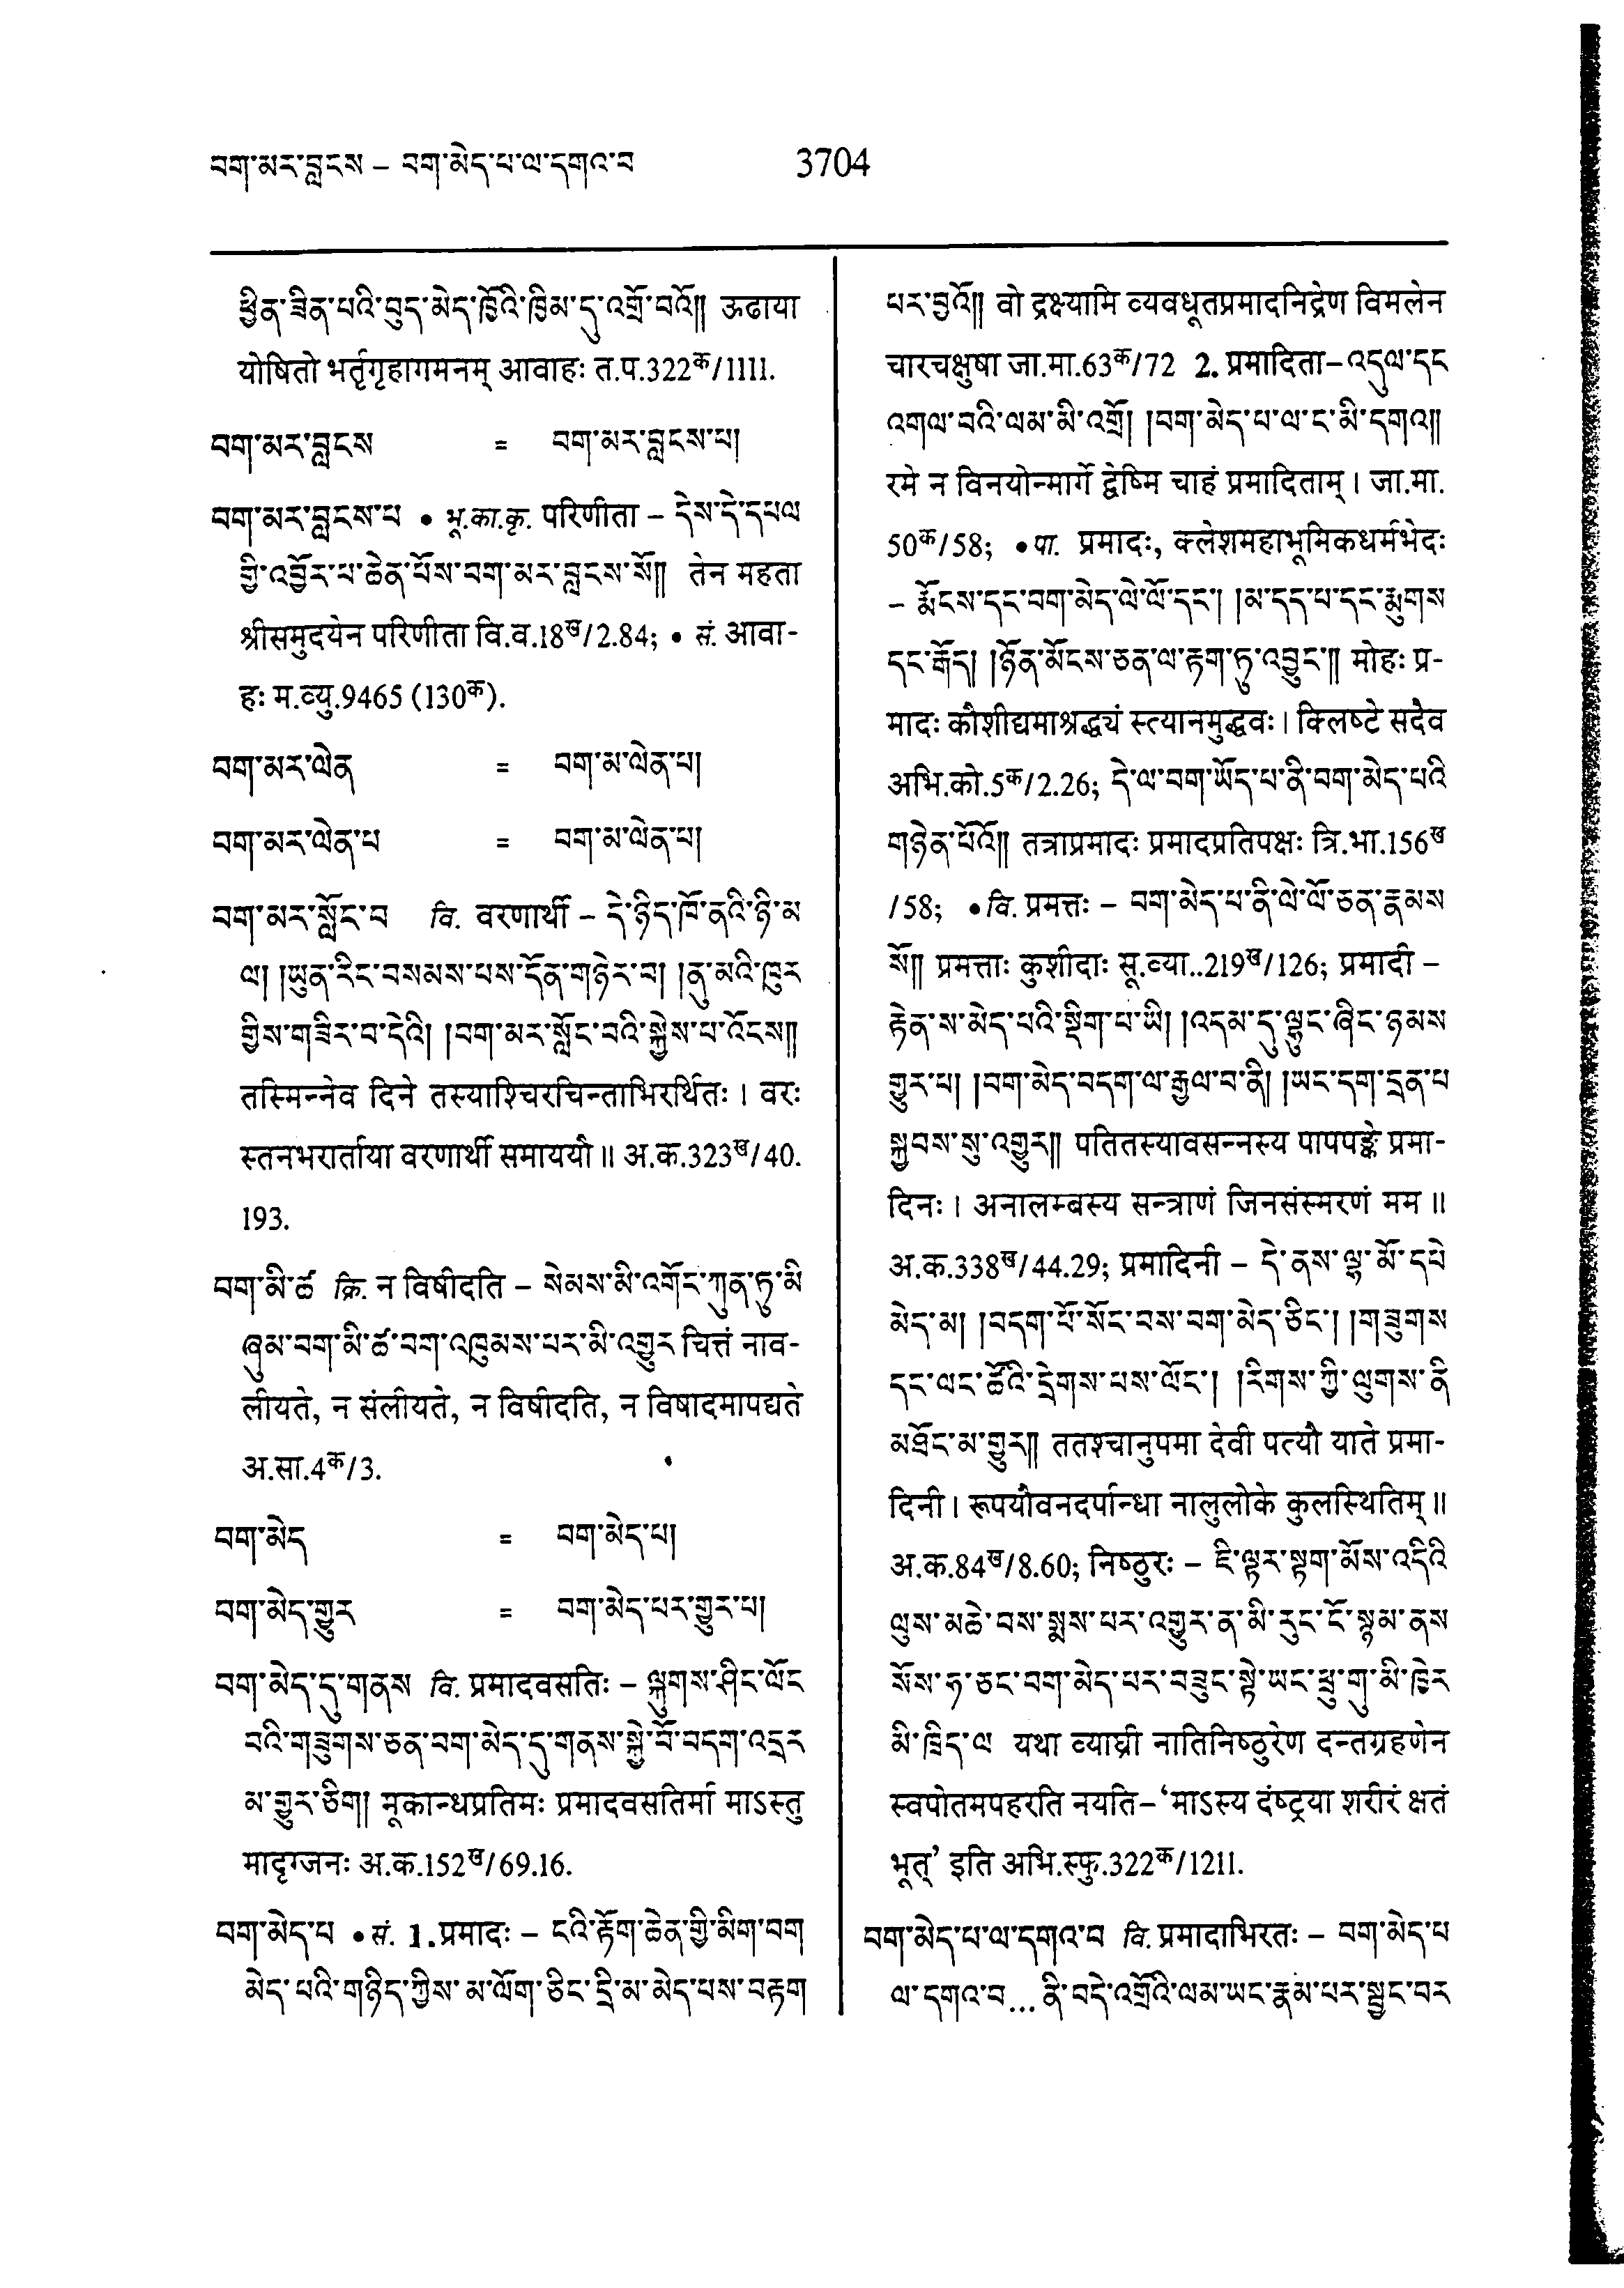 བག་མར་བླངས – བག་མེད་པ་ལ་དགའ་བ
3704
ཕྱིན་ཟིན་པའི་བུད་མེད་ཁྱོའི་ཁྱིམ་དུ་འགྲོ་བའོ༎ ऊढाया
योषितो भर्तृगृहागमनम् आवाहः त.प.322क/1111.
བག་མར་བླངས = བག་མར་བླངས་པ།
བག་མར་བླངས་པ • भू.का.कृ. परिणीता – དེས་དེ་དཔལ
གྱི་འབྱོར་པ་ཆེན་པོས་བག་མར་བླངས་སོ༎ तेन महता
श्रीसमुदयेन परिणीता वि.व.18ख/2.84; • सं. आवा-
हः म.व्यु.9465 (130क).
བག་མར་ལེན = བག་མ་ལེན་པ།
བག་མར་ལེན་པ = བག་མ་ལེན་པ།
བག་མར་སློང་བ वि. वरणार्थी – དེ་ཉིད་ཁོ་ནའི་ཉི་མ
ལ། །ཡུན་རིང་བསམས་པས་དོན་གཉེར་བ། །ནུ་མའི་ཁུར
གྱིས་གཟིར་བ་དེའི། །བག་མར་སློང་བའི་སྐྱེས་པ་འོངས༎
तस्मिन्नेव दिने तस्याश्चिरचिन्ताभिरर्थितः । वरः
स्तनभरार्ताया वरणार्थी समाययौ ॥ अ.क.323ख/40.
193.
བག་མི་ཚ क्रि. न विषीदति – སེམས་མི་འགོང་ཀུན་ཏུ་མི
ཞུམ་བག་མི་ཚ་བག་འཁུམས་པར་མི་འགྱུར चित्तं नाव-
लीयते, न संलीयते, न विषीदति, न विषादमापद्यते
अ.सा.4क/3.
བག་མེད = བག་མེད་པ།
བག་མེད་གྱུར = བག་མེད་པར་གྱུར་པ།
བག་མེད་དུ་གནས वि. प्रमादवसतिः – ལྐུགས་ཤིང་ལོང
བའི་གཟུགས་ཅན་བག་མེད་དུ་གནས་སྐྱེ་བོ་བདག་འདྲར
མ་གྱུར་ཅིག། मूकान्धप्रतिमः प्रमादवसतिर्मा माऽस्तु
मादृग्जनः अ.क.152ख/69.16.
བག་མེད་པ • सं. 1.प्रमादः – ངའི་རྟོག་ཆེན་གྱི་མིག་བག
མེད་པའི་གཉིད་ཀྱིས་མ་ལོག་ཅིང་དྲི་མ་མེད་པས་བརྟག
པར་བྱའོ༎ वो द्रक्ष्यामि व्यवधूतप्रमादनिद्रेण विमलेन
चारचक्षुषा जा.मा.63क/72 2. प्रमादिता–འདུལ་དང
འགལ་བའི་ལམ་མི་འགྲོ། །བག་མེད་པ་ལ་ང་མི་དགའ༎
रमे न विनयोन्मार्गे द्वेष्मि चाहं प्रमादिताम् । जा.मा.
50क/58; •पा. प्रमादः, क्लेशमहाभूमिकधर्मभेदः
– རྨོངས་དང་བག་མེད་ལེ་ལོ་དང་། །མ་དད་པ་དང་རྨུགས
དང་རྒོད། །ཉོན་མོངས་ཅན་ལ་རྟག་ཏུ་འབྱུང་༎ मोहः प्र-
मादः कौशीद्यमाश्रद्ध्यं स्त्यानमुद्धवः । क्लिष्टे सदैव
अभि.को.5क/2.26; དེ་ལ་བག་ཡོད་པ་ནི་བག་མེད་པའི
གཉེན་པོའོ༎ तत्राप्रमादः प्रमादप्रतिपक्षः त्रि.भा.156ख
/58; •वि. प्रमत्तः – བག་མེད་པ་ནི་ལེ་ལོ་ཅན་རྣམས
སོ༎ प्रमत्ताः कुशीदाः सू.व्या..219ख/126; प्रमादी –
རྟེན་ས་མེད་པའི་སྡིག་པ་ཡི། །འདམ་དུ་ལྷུང་ཞིང་ཉམས
གྱུར་པ། །བག་མེད་བདག་ལ་རྒྱལ་བ་ནི། །ཡང་དག་དྲན་པ
སྐྱབས་སུ་འགྱུར༎ पतितस्यावसन्नस्य पापपङ्के प्रमा-
दिनः । अनालम्बस्य सन्त्राणं जिनसंस्मरणं मम ॥
अ.क.338ख/44.29; प्रमादिनी – དེ་ནས་ལྷ་མོ་དཔེ
མེད་མ། །བདག་པོ་སོང་བས་བག་མེད་ཅིང་། །གཟུགས
དང་ལང་ཚོའི་དྲེགས་པས་ལོང་། །རིགས་ཀྱི་ལུགས་ནི
མཐོང་མ་གྱུར༎ ततश्चानुपमा देवी पत्यौ याते प्रमा-
दिनी । रूपयौवनदर्पान्धा नालुलोके कुलस्थितिम् ॥
अ.क.84ख/8.60; निष्ठुरः – ཇི་ལྟར་སྟག་མོས་འདིའི
ལུས་མཆེ་བས་སྨས་པར་འགྱུར་ན་མི་རུང་ངོ་སྙམ་ནས
སོས་ཧ་ཅང་བག་མེད་པར་བཟུང་སྟེ་ཡང་ཕྲུ་གུ་མི་ཁྱེར
མི་ཁྲིད་ལ यथा व्याघ्री नातिनिष्ठुरेण दन्तग्रहणेन
स्वपोतमपहरति नयति–‘माऽस्य दंष्ट्रया शरीरं क्षतं
भूत्’ इति अभि.स्फु.322क/1211.
བག་མེད་པ་ལ་དགའ་བ वि. प्रमादाभिरतः – བག་མེད་པ
ལ་དགའ་བ... ནི་བདེ་འགྲོའི་ལམ་ཡང་རྣམ་པར་སྦྱང་བར